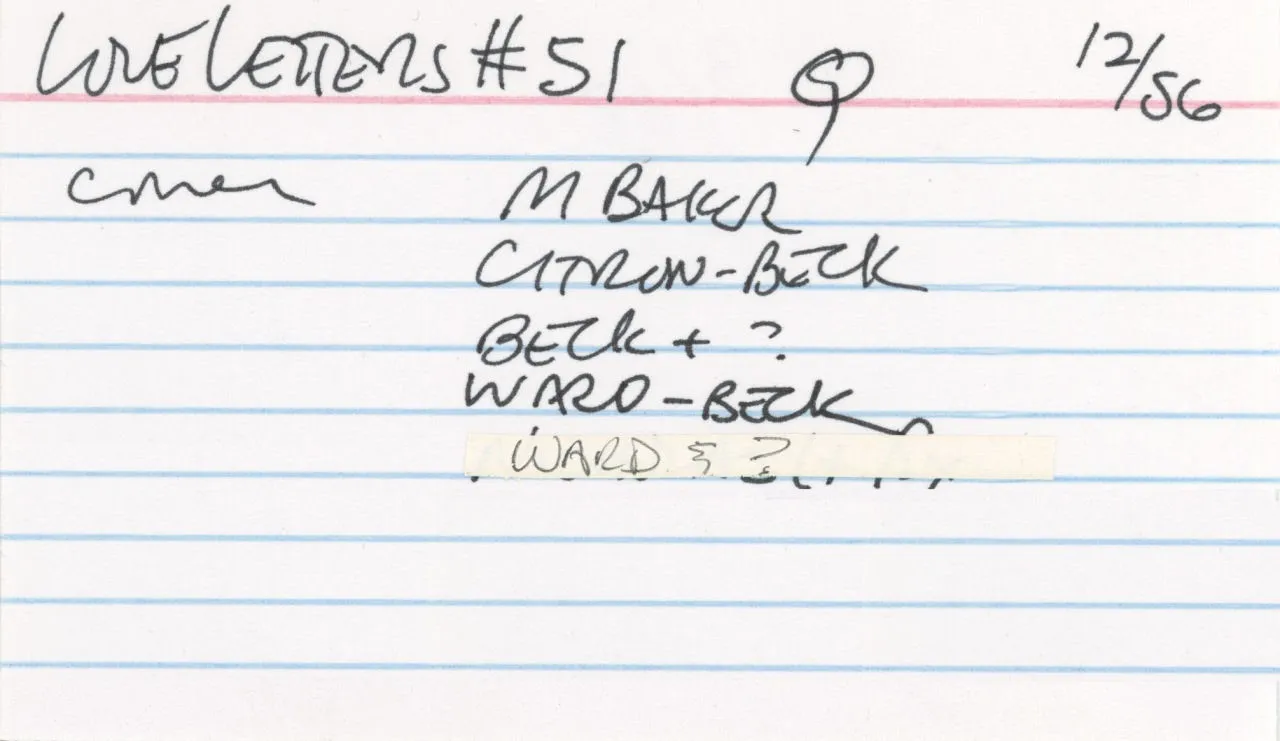 LOVE LETTERS #51 Q 12/56
cover M BAKER
CITRON-BECK
BECK + ?
WARD-BECK
WARD & ?